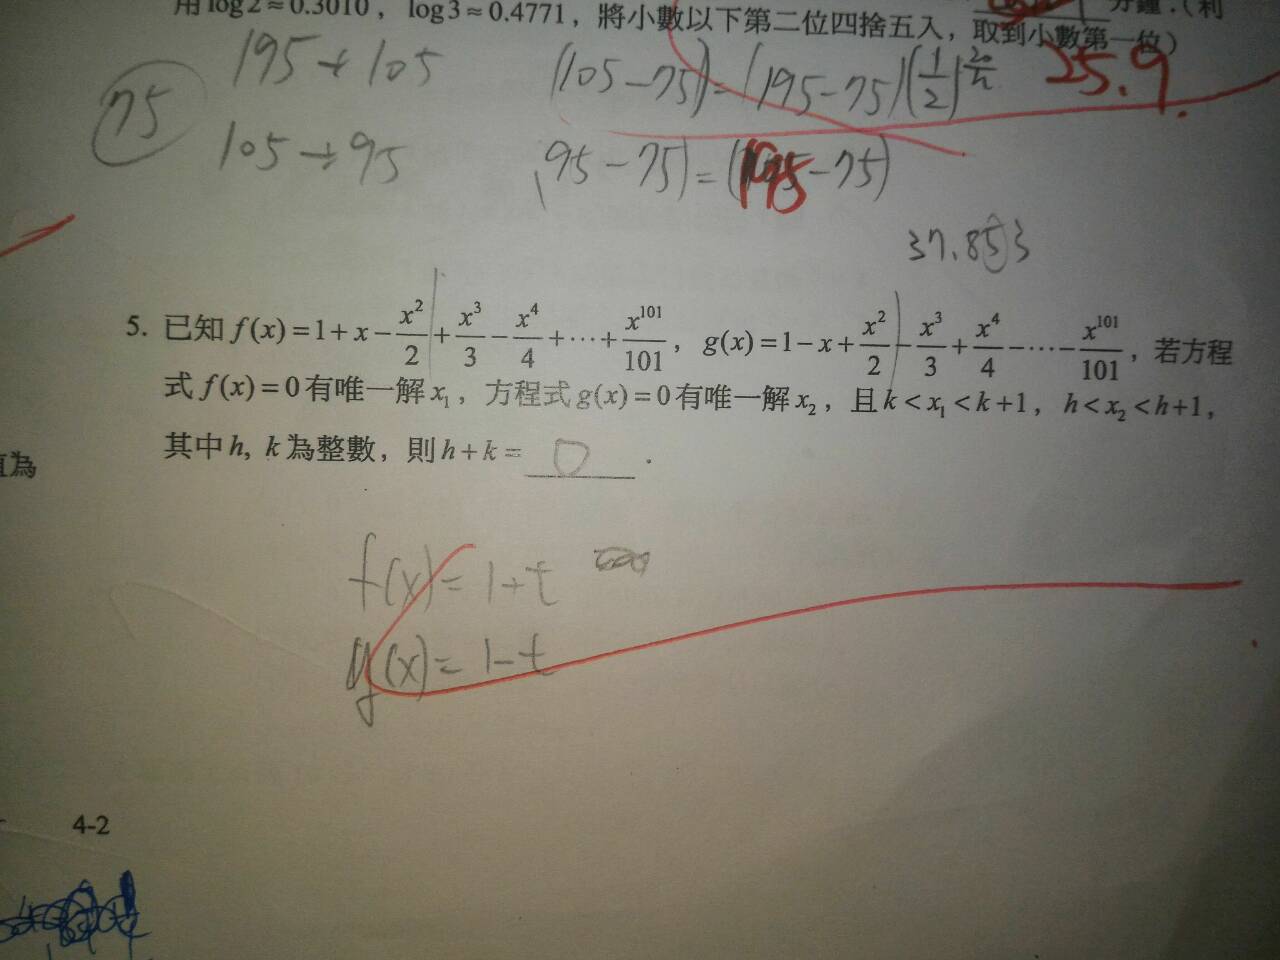 用 log2≈0.3010，log3≈0.4771，將小數以下第二位四捨五入，取到小數第一位）
分鐘．（利
195→105 (105−75)=(195−75)(1/2)^(20/h) 25.9
75
105→95 (95−75)=(195−75)
37.853
5. 已知 f(x)=1+x−x²/2+x³/3−x⁴/4+⋯+x¹⁰¹/101，g(x)=1−x+x²/2−x³/3+x⁴/4−⋯−x¹⁰¹/101，若方程
式 f(x)=0 有唯一解 x₁，方程式 g(x)=0 有唯一解 x₂，且 k<x₁<k+1，h<x₂<h+1，
其中 h, k 為整數，則 h+k= 0 ．
值為
f(x)=1+t
g(x)=1−t
4-2